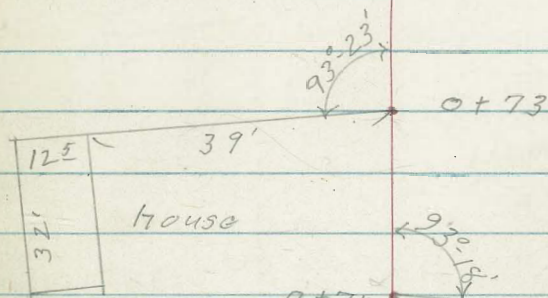 93°-23'
0+73
12⁵ 39'
32' house
93°-18'